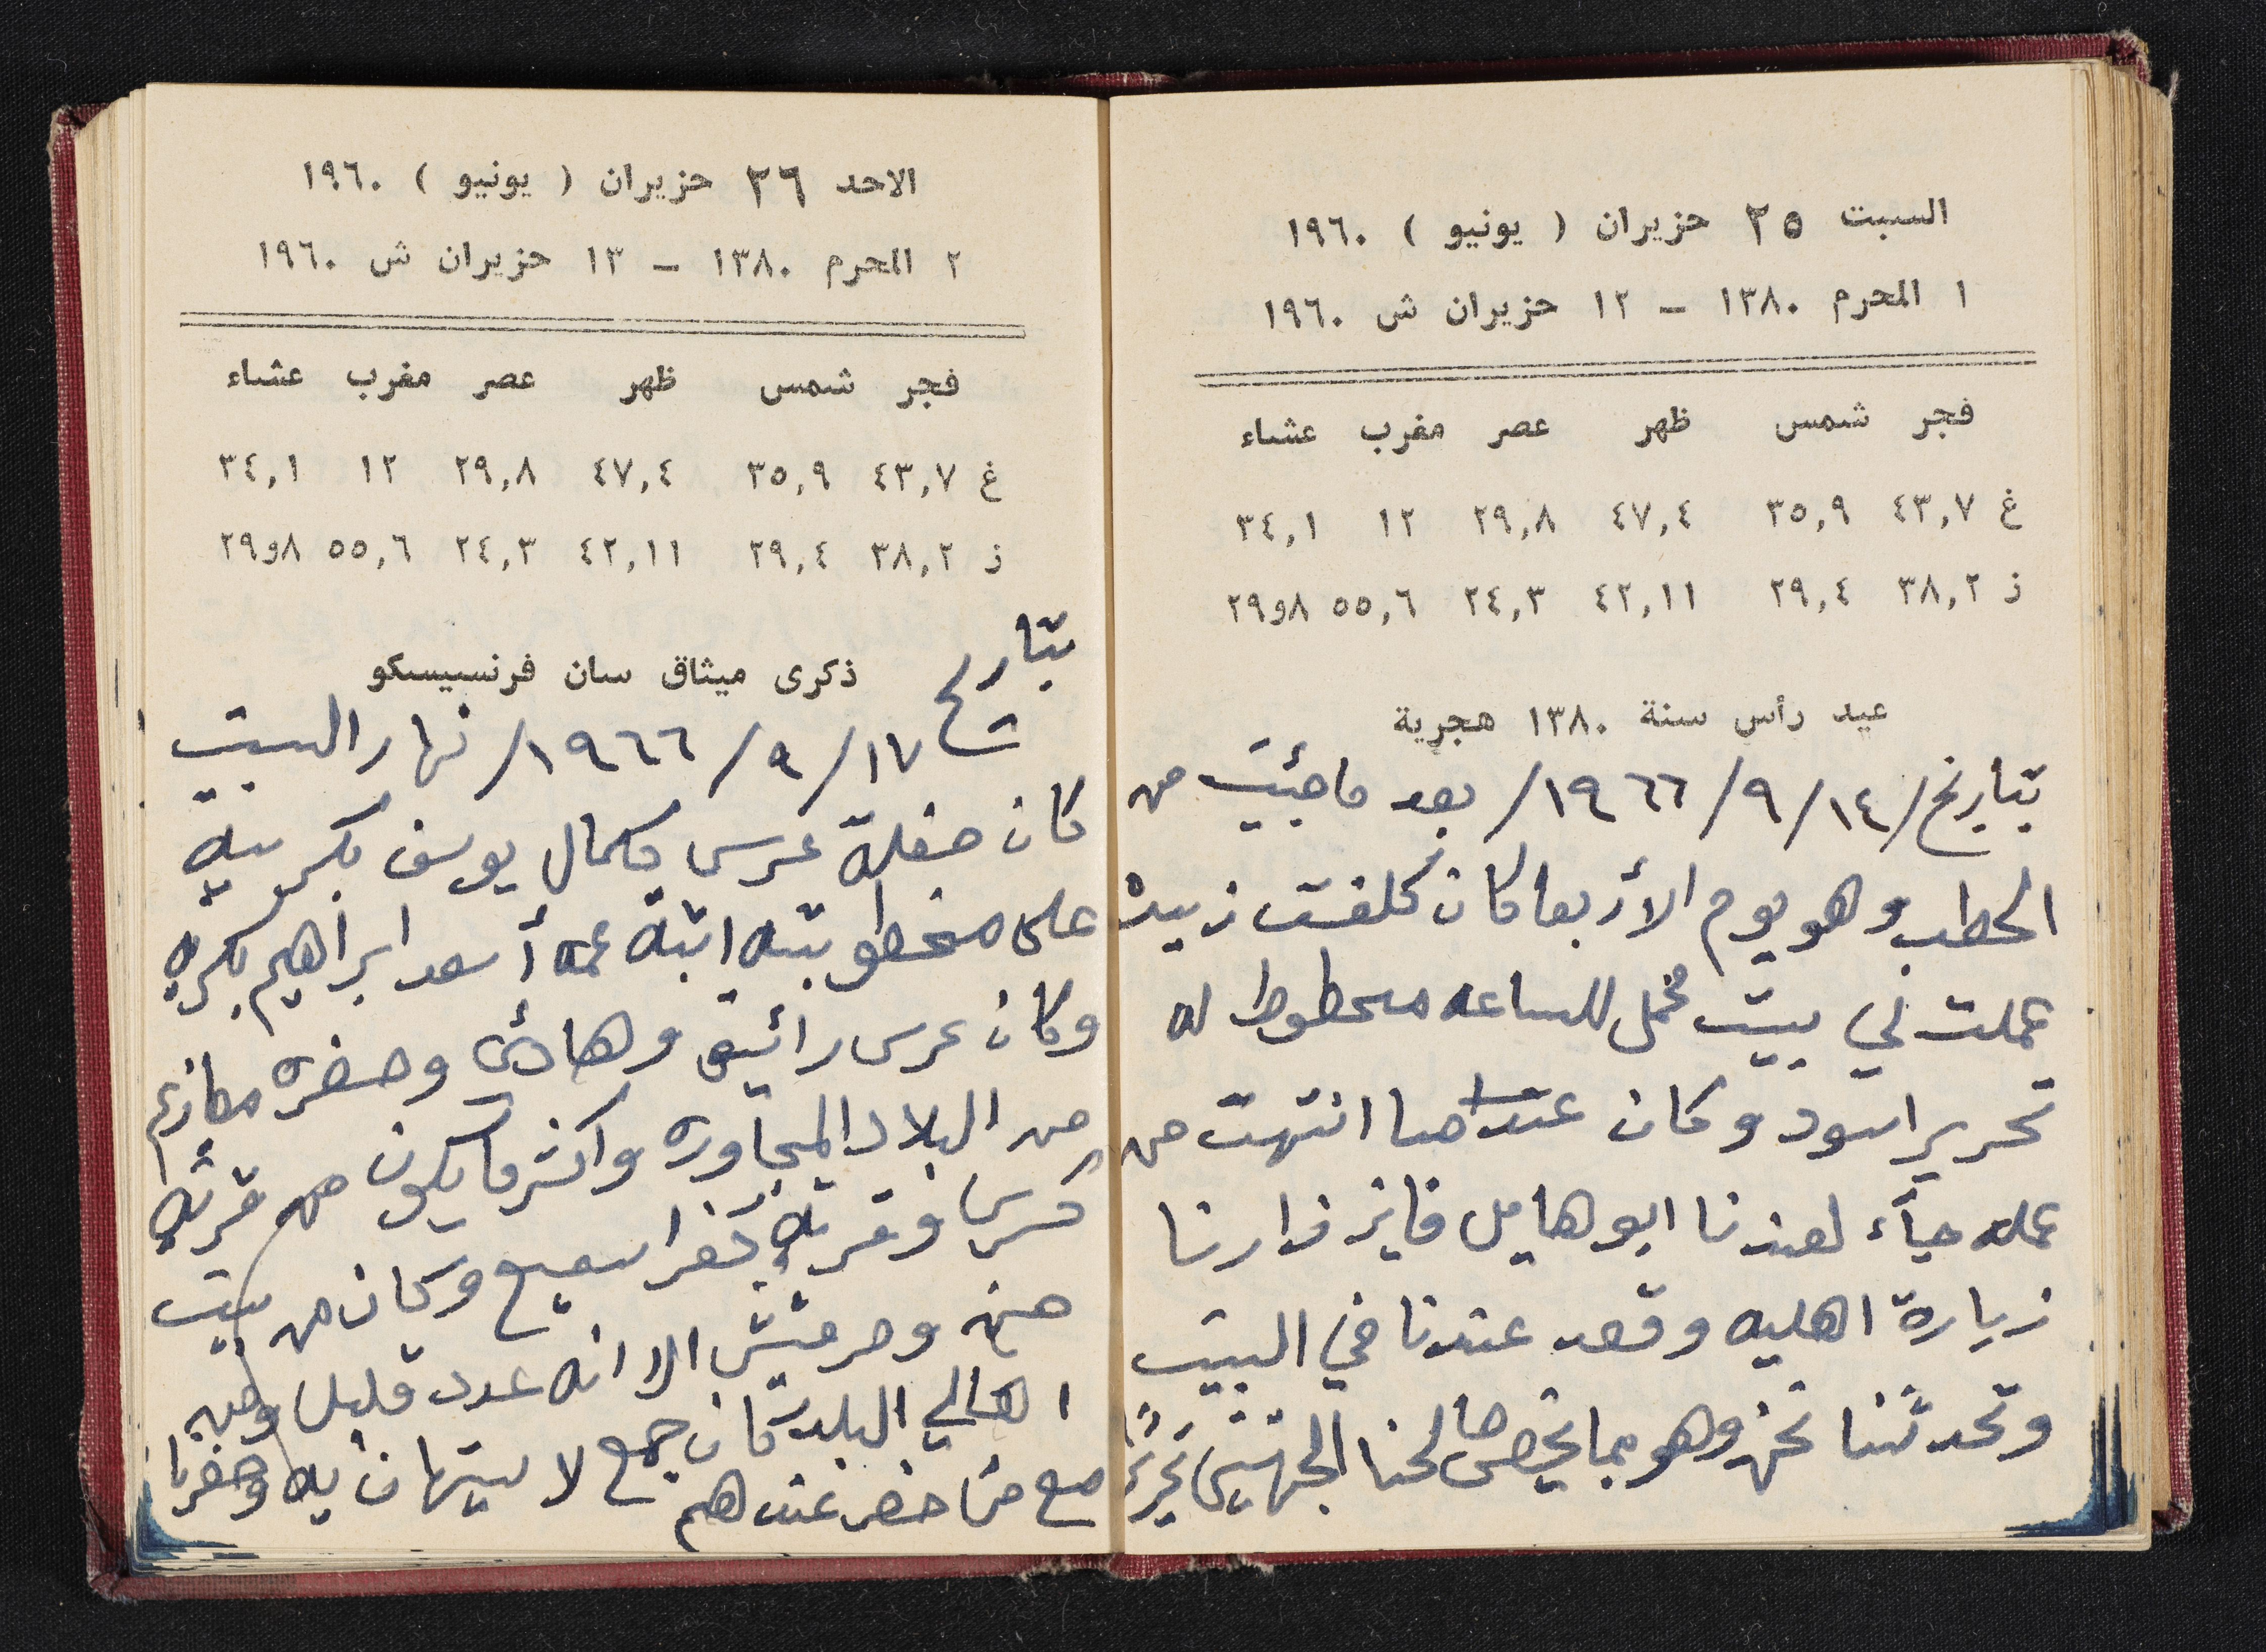 السبت ٢٥ حزيران ( يونيو ) ١٩٦٠
١ المحرم ١٣٨٠ – ١٢ حزيران ش ١٩٦٠
فجر شمس ظهر عصر مغرب عشاء
غ ٤٣,٧ ٣٥,٩ ٤٧,٤ ٢٩,٨ ١٢ ٣٤,١
ز ٣٨,٢ ٢٩,٤ ٤٢,١١ ٢٤,٣ ٥٥,٦ ٨و٢٩
عيد رأس سنة ١٣٨٠ هجرية
بتاريخ/١٤/٩/١٩٦٦/ بعد ما جئيت من
الحطب وهو يوم الأربعا كان كلفت زبيده
عملت لي بيت مخمل للساعه محطوط له
تحرير اسود وكان عندما انتهت من
عمله جآء لعندنا ابو هايل فايز زارنا
زيارة اهليه وقعد عندنا في البيت
وتحدثنا نحن وهو بما يخص صالحنا الجهتين
الاحد ٢٦ حزيران ( يونيو ) ١٩٦٠
٢ المحرم ١٣٨٠ – ١٣ حزيران ش ١٩٦٠
فجر شمس ظهر عصر مغرب عشاء
غ ٤٣,٧ ٣٥,٩ ٤٧,٤ ٢٩,٨ ١٢ ٣٤,١
ز ٣٨,٢ ٢٩,٤ ٤٢,١١ ٢٤,٣ ٥٥,٦ ٨و٢٩
ذكرى ميثاق سان فرنسيسكو
بتاريخ
١٧/٩/١٩٦٦/ نهار السبت
كان حفلة عرس كمال يوسف بكريه
على مخطوبته ابنة عمه أسعد ابراهيم بكريه
وكان عرس رائيق وهادئ وحضره معازيم
من البلاد المجاوره واكثر ما يكون من قرية
كسرى وقرية كفر اسميع وكان من بيت
جن وحرفيش الا انه عدد قليل ومن
اهالي البلد كان جمع لا يستهان به وحضرنا
مع من حضر عندهم